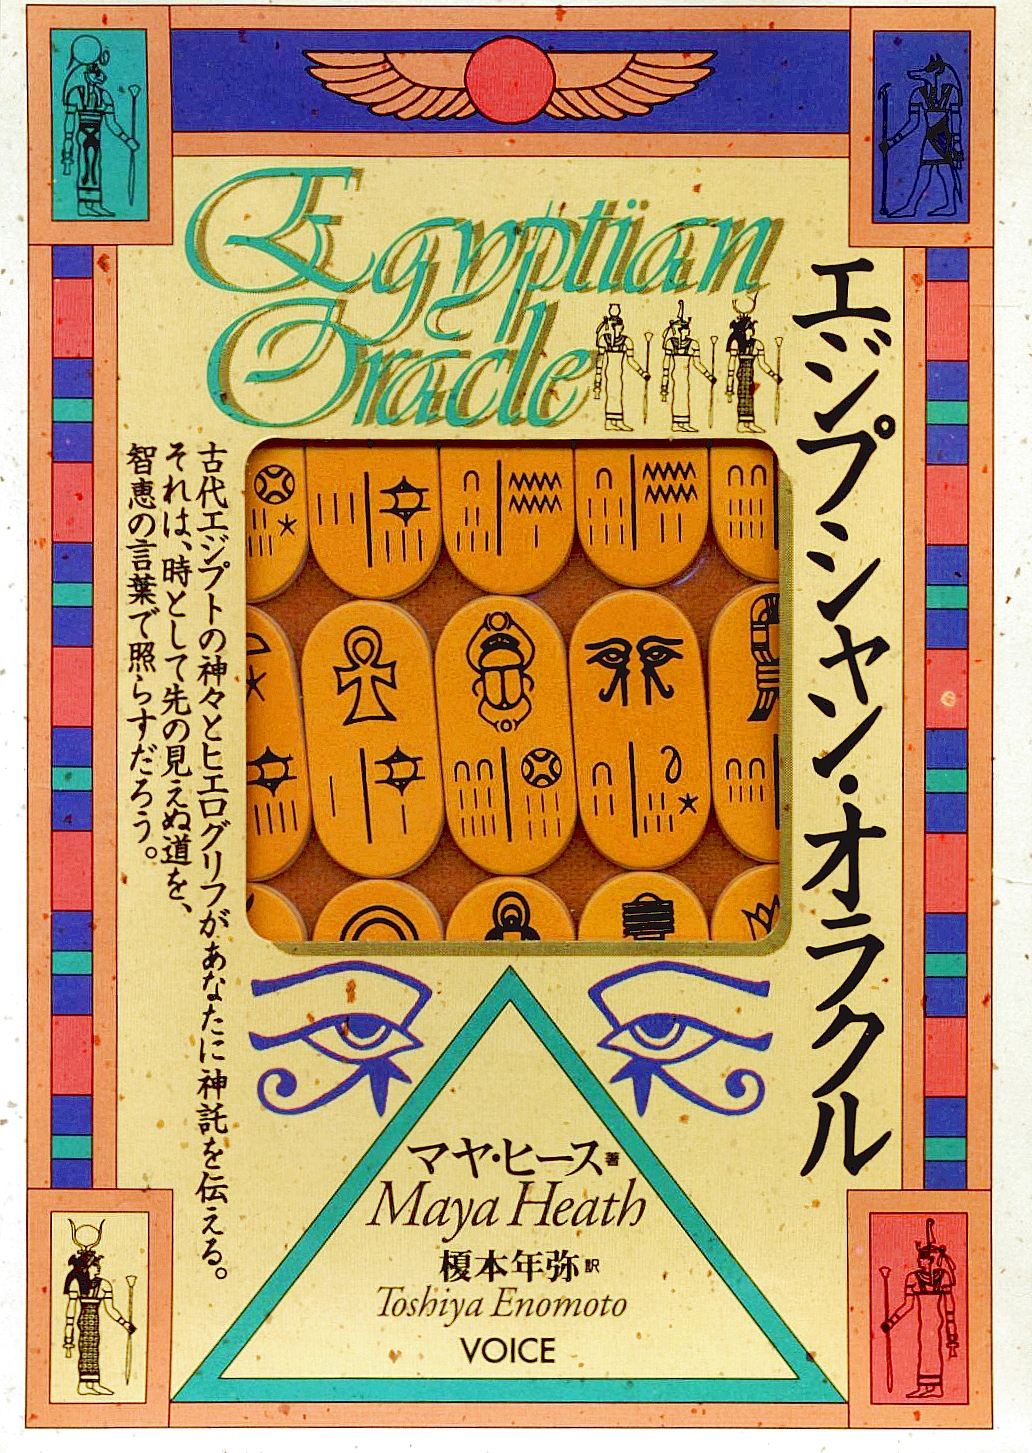 Egyptian
Oracle
エジプシャン・オラクル
古代エジプトの神々とヒエログリフがあなたに神託を伝える。
それは、時として先の見えぬ道を、
智恵の言葉で照らすだろう。
マヤ・ヒース著
Maya Heath
榎本年弥訳
Toshiya Enomoto
VOICE